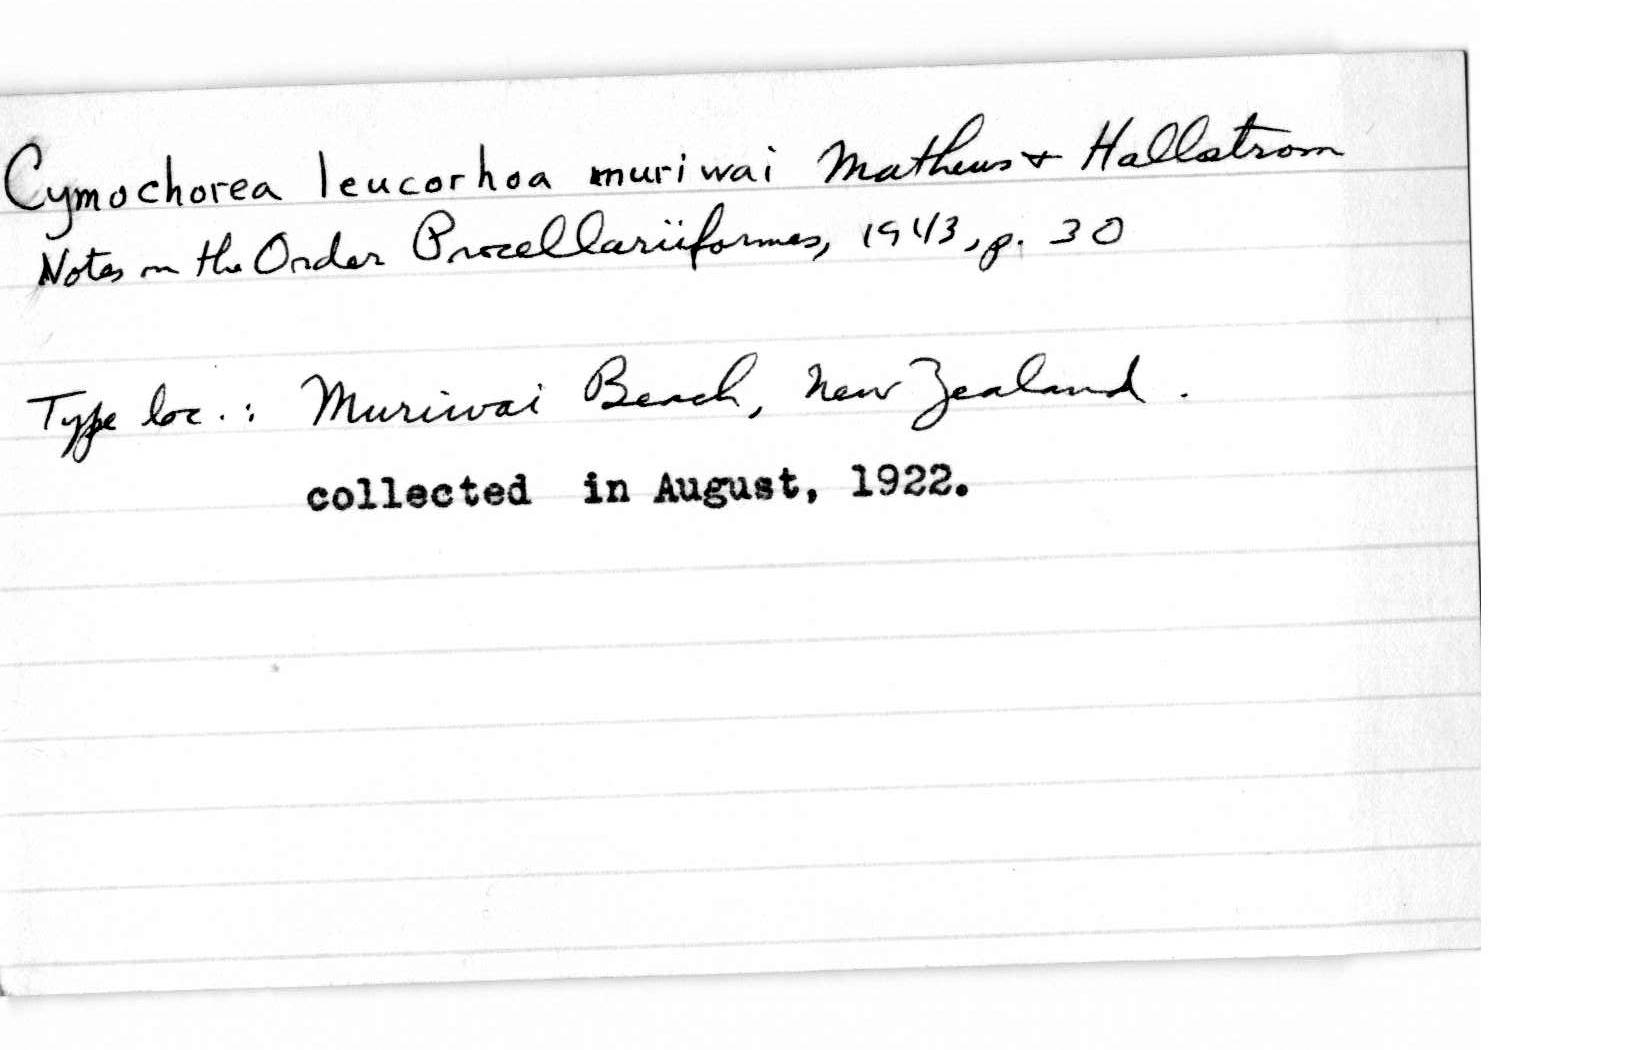 Cymochorea leucorhoa muriwai Mathews & Hallstrom
Notes on the Order Procellariiformes, 1943, p. 30
Type loc.: Muriwai Beach, New Zealand.
collected in August, 1922.